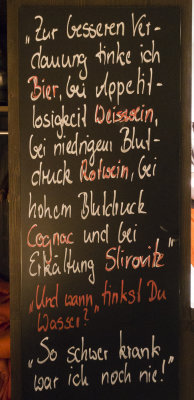 „Zur besseren Ver-
dauung tinke ich
Bier, bei Appetit-
losigkeit Weisswein,
bei niedrigem Blut-
druck Rotwein, bei
hohem Blutdruck
Cognac und bei
Erkältung Slivovitz"
„Und wann tinkst Du
Wasser?"
„So schwer krank
war ich noch nie!"